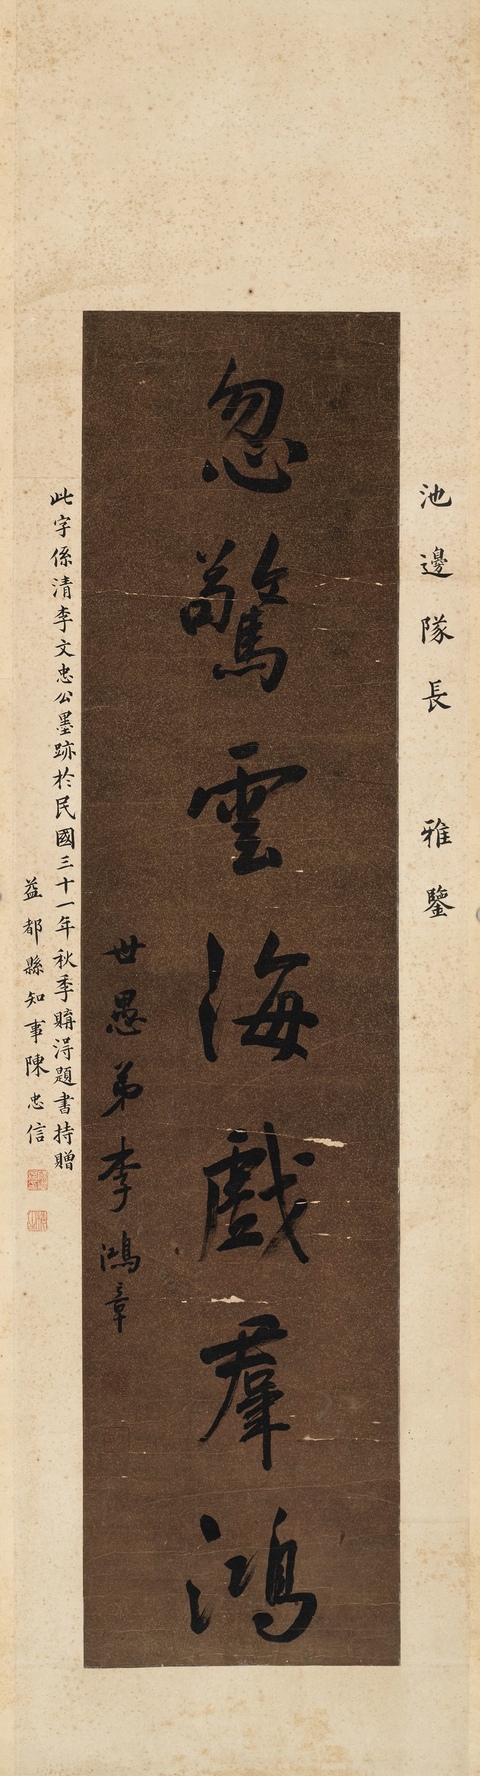 池邊隊長 雅鑒
忽驚雲海戲羣鴻
世愚弟李鴻章
此字係清李文忠公墨跡於民國三十一年秋季購得題書持贈
益都縣知事陳忠信